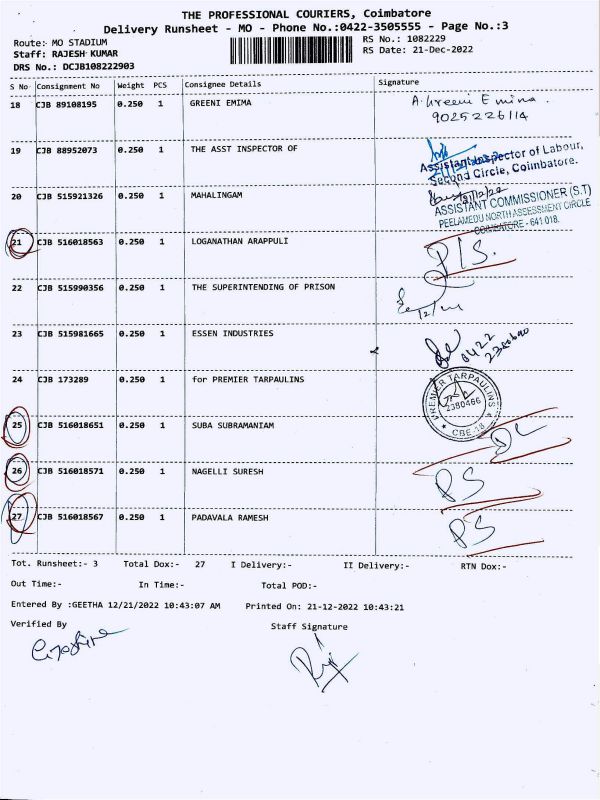 THE PROFESSIONAL COURIERS, Coimbatore
Delivery Runsheet - MO - Phone No.:0422-3505555 - Page No.:3
Route:- MO STADIUM
RS No.: 1082229
Staff: RAJESH KUMAR
RS Date: 21-Dec-2022
DRS No.: DCJB108222903
S No Consignment No Weight PCS Consignee Details Signature
18 CJB 89108195 0.250 1 GREENI EMIMA A. Greeni Emima.
9025226114
19 CJB 88952073 0.250 1 THE ASST INSPECTOR OF
Assistant Inspector of Labour,
Second Circle, Coimbatore.
20 CJB 515921326 0.250 1 MAHALINGAM
ASSISTANT COMMISSIONER (S.T)
PEELAMEDU NORTH ASSESSMENT CIRCLE
COIMBATORE - 641 018.
21 CJB 516018563 0.250 1 LOGANATHAN ARAPPULI
22 CJB 515990356 0.250 1 THE SUPERINTENDING OF PRISON
23 CJB 515981665 0.250 1 ESSEN INDUSTRIES 0422
2380690
24 CJB 173289 0.250 1 for PREMIER TARPAULINS
PREMIER TARPAULINS
2380466
CBE-18
25 CJB 516018651 0.250 1 SUBA SUBRAMANIAM DL
26 CJB 516018571 0.250 1 NAGELLI SURESH PS
27 CJB 516018567 0.250 1 PADAVALA RAMESH PS
Tot. Runsheet:- 3 Total Dox:- 27 I Delivery:- II Delivery:- RTN Dox:-
Out Time:- In Time:- Total POD:-
Entered By :GEETHA 12/21/2022 10:43:07 AM Printed On: 21-12-2022 10:43:21
Verified By Staff Signature